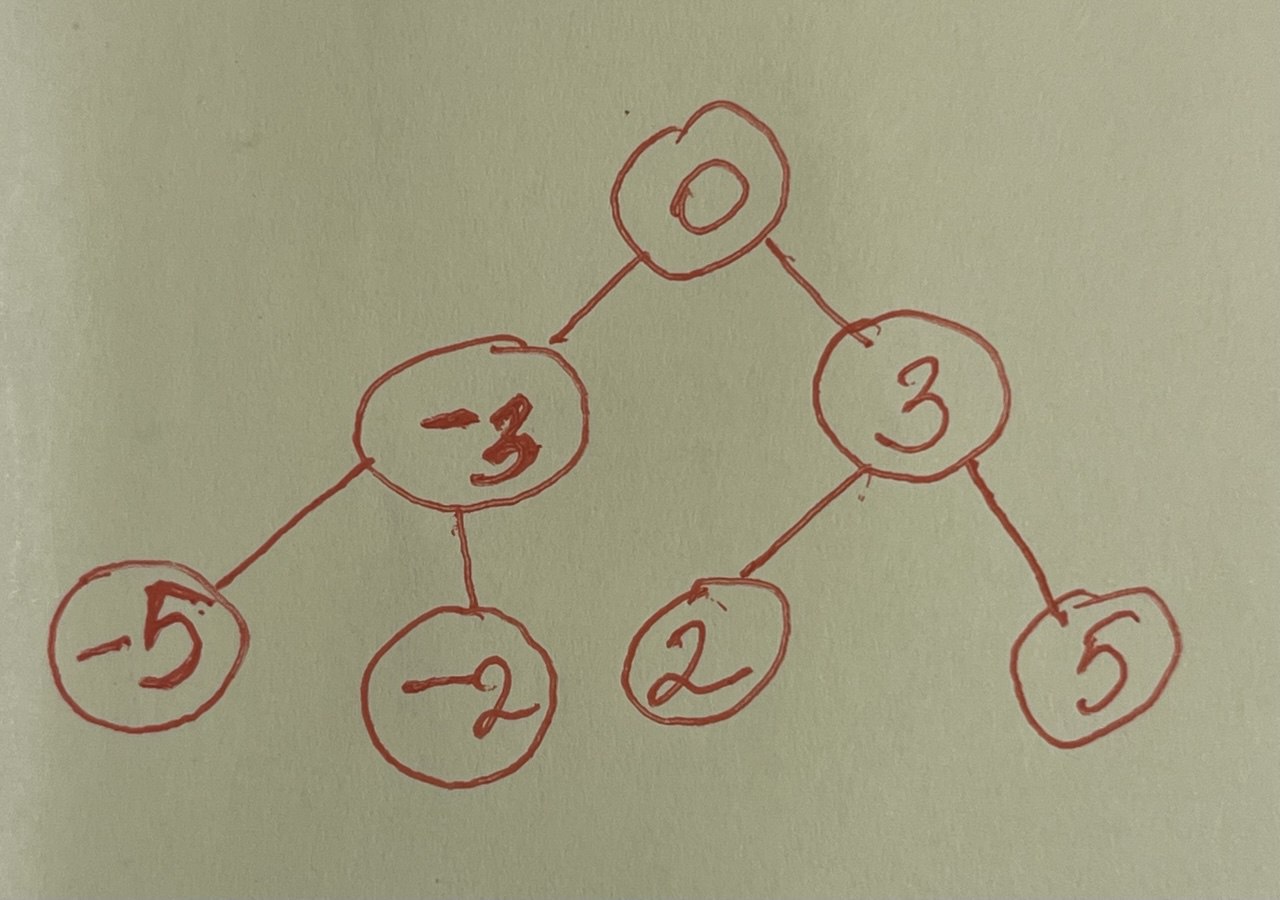 0
-3 3
-5 -2 2 5